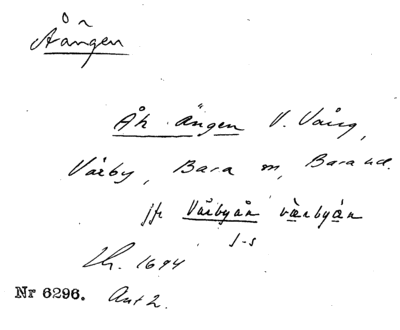 Åängen
Åh ängen V. Vång,
Värby, Bara sn, Bara hd.
jfr Värbyån vä̀rbyán
s-s
Lh. 1694
Nr 6296. Ant 2.